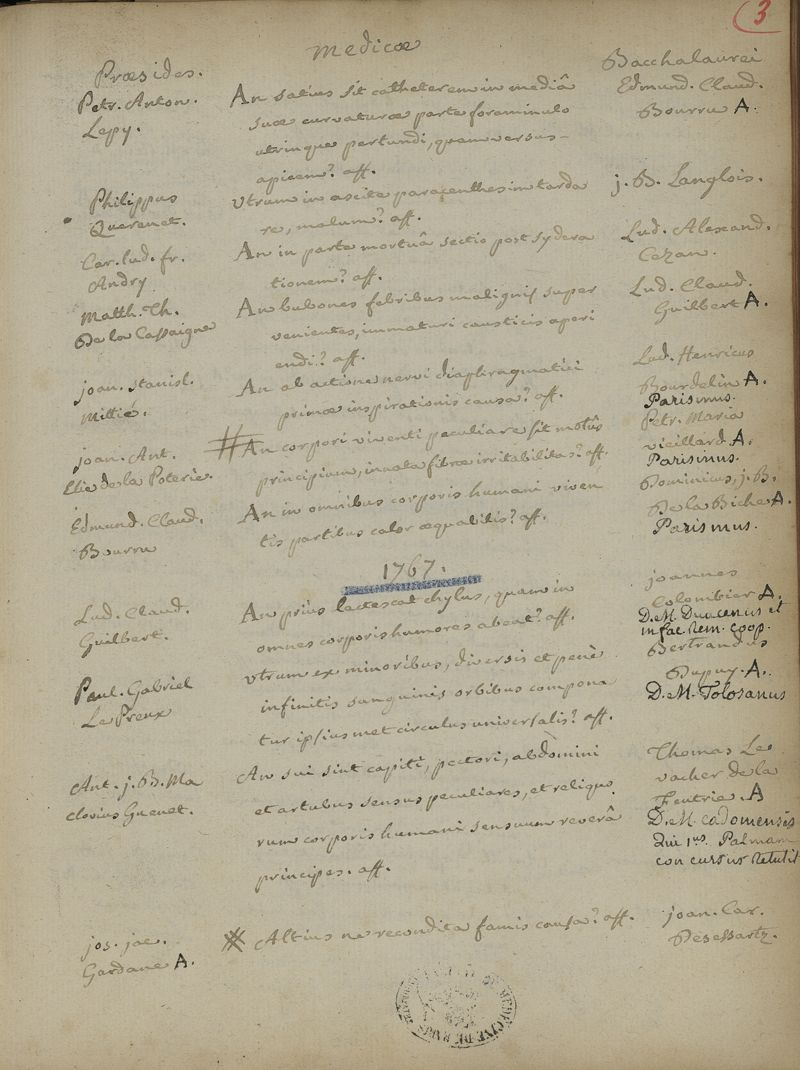 3
Medicæ
Præsides.
Bacchalaurei
Petr. Anton.
Lepy.
An satius sit catheterem in mediâ
suæ curvaturæ parte foraminulo
utrinque pertundi, quam versus-
apicem? aff.
Edmund. Claud.
Bourru A.
Philippus
Querenet.
Utrum in ascite paracenthesim tarda
re, malum? aff.
j. B. Langlois.
Car. lud. fr.
Andry
An in parte mortuâ sectio post sydera
tionem? aff.
Lud. Alexand.
Cezan.
Matth. Th.
De la Cassaigne
An bubones febribus malignis super
venientes, immaturi causticis aperi
endi? aff.
Lud. Claud.
Guilbert A.
joan. stanisl.
Mittié.
An ab actione nervi diaphragmatici
primæ inspirationis causa? aff.
Lud. Henricus
Bourdelin A.
Parisinus.
joan. Ant.
Elie de la Poterie.
# An corpori viventi peculiare sit motûs
principium, innata fibræ irritabilitas? aff.
Petr. Maria
vieillard A.
Parisinus.
Edmund. Claud.
Bourru
An in omnibus corporis humani viven
tis partibus calor æquabilis? aff.
Dominicus, j. B.
De la Biche A.
Parisinus.
1767.
Lud. Claud.
Guilbert.
An prius lactescat chylus, quam in
omnes corporis humores abeat? aff.
joannes
Colombier A.
D.M. Duacenus et
in fac rem. coop.
Paul. Gabriel
Le Preux
Utrum ex minoribus, diversis et penè
infinitis sanguinis orbibus compona
tur ipsius met circulus universalis? aff.
Bertrandus
Dupuy. A.
D.M. Tolosanus
Ant. j. B. Ma
clovius Guenet.
An sui sint capiti, pectori, abdomini
et artubus sensus peculiares, et reliquo
rum corporis humani sensuum reverâ
principes. aff.
Thomas Le
vacher de la
Feutrie. A
D.M. cadomensis
Qui 1us. Palmam
concursus retulit
jos. jac.
Gardane A.
Altius ne recondita famis causa? aff.
joan. Car.
Desessartz.
MEDECINE DE PARIS